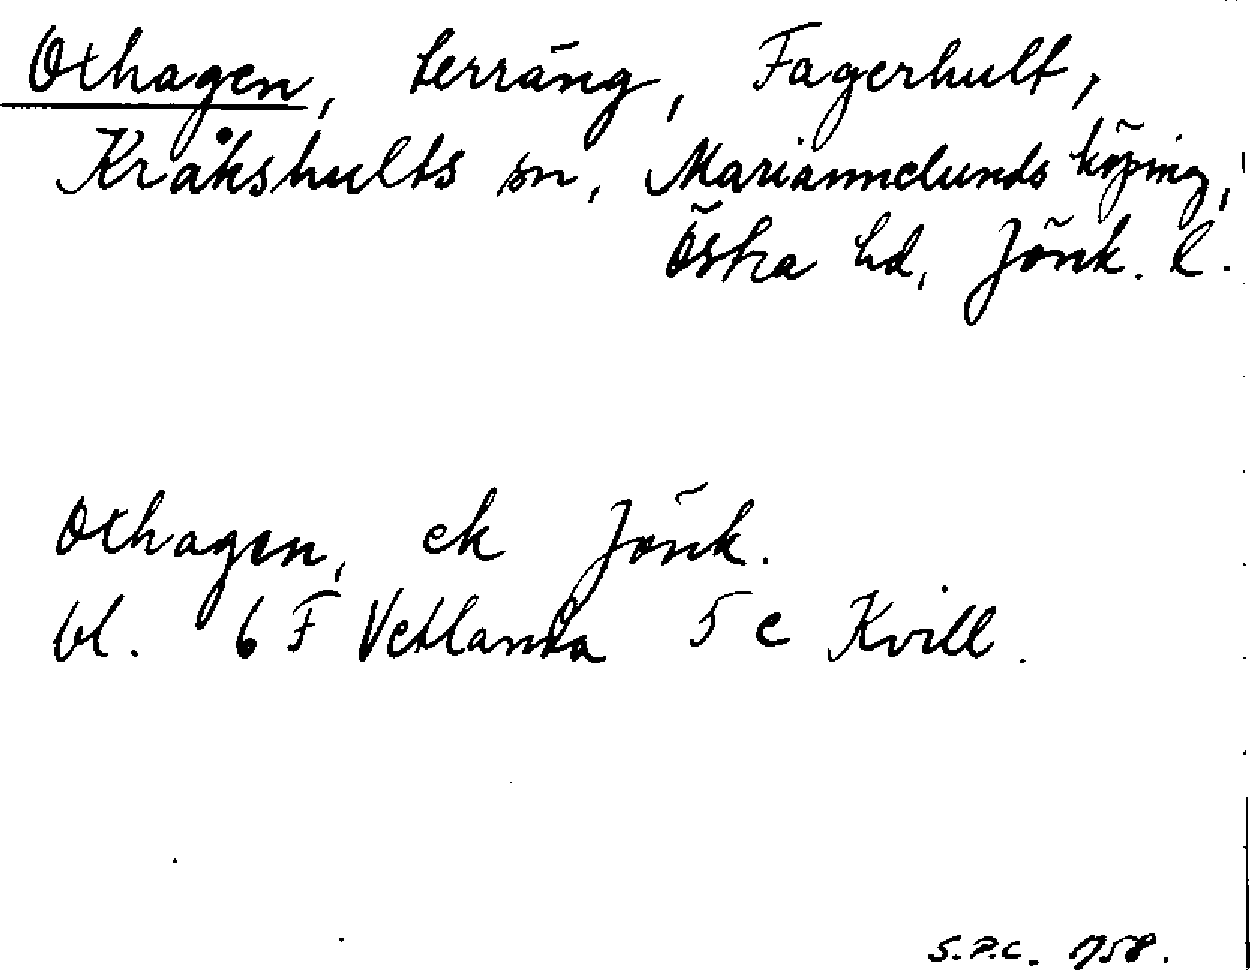 Oxhagen, terräng, Fagerhult,
Kråkshults sn, Mariannelunds köping,
Östra hd, Jönk. l.
Oxhagen, ek Jönk.
bl. 6 F Vetlanda 5 e Kvill.
S.P.C. 1758.